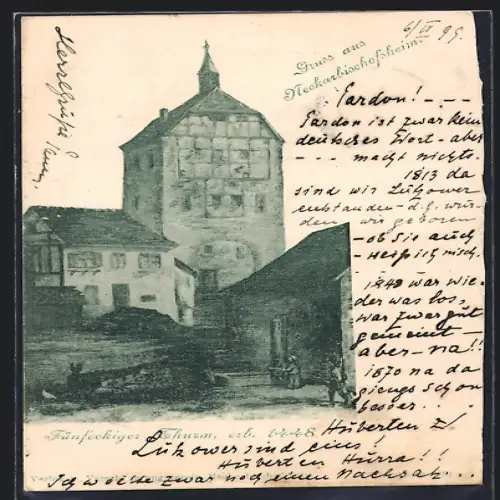 6/II 99.
Gruss aus
Neckarbischofsheim.
Herzl. Grüße
Pardon! - - -
Pardon ist zwar kein
deutsches Wort - aber
- - - macht nichts.
1813 da
sind wir Lützower
entstanden - d.h. wur-
den wir geboren
- ob Sie auch
- weiß ich nicht.
1848 war wie-
der was los,
war zwar gut
gemeint -
aber - na!!
1870 na da
giengs schon
besser..
Fünfeckiger Thurm, erb. 1448.
Huberten
Lützower sind eins!
Huberten Hurra!!
Ich wollte zwar noch einen Nachsatz...